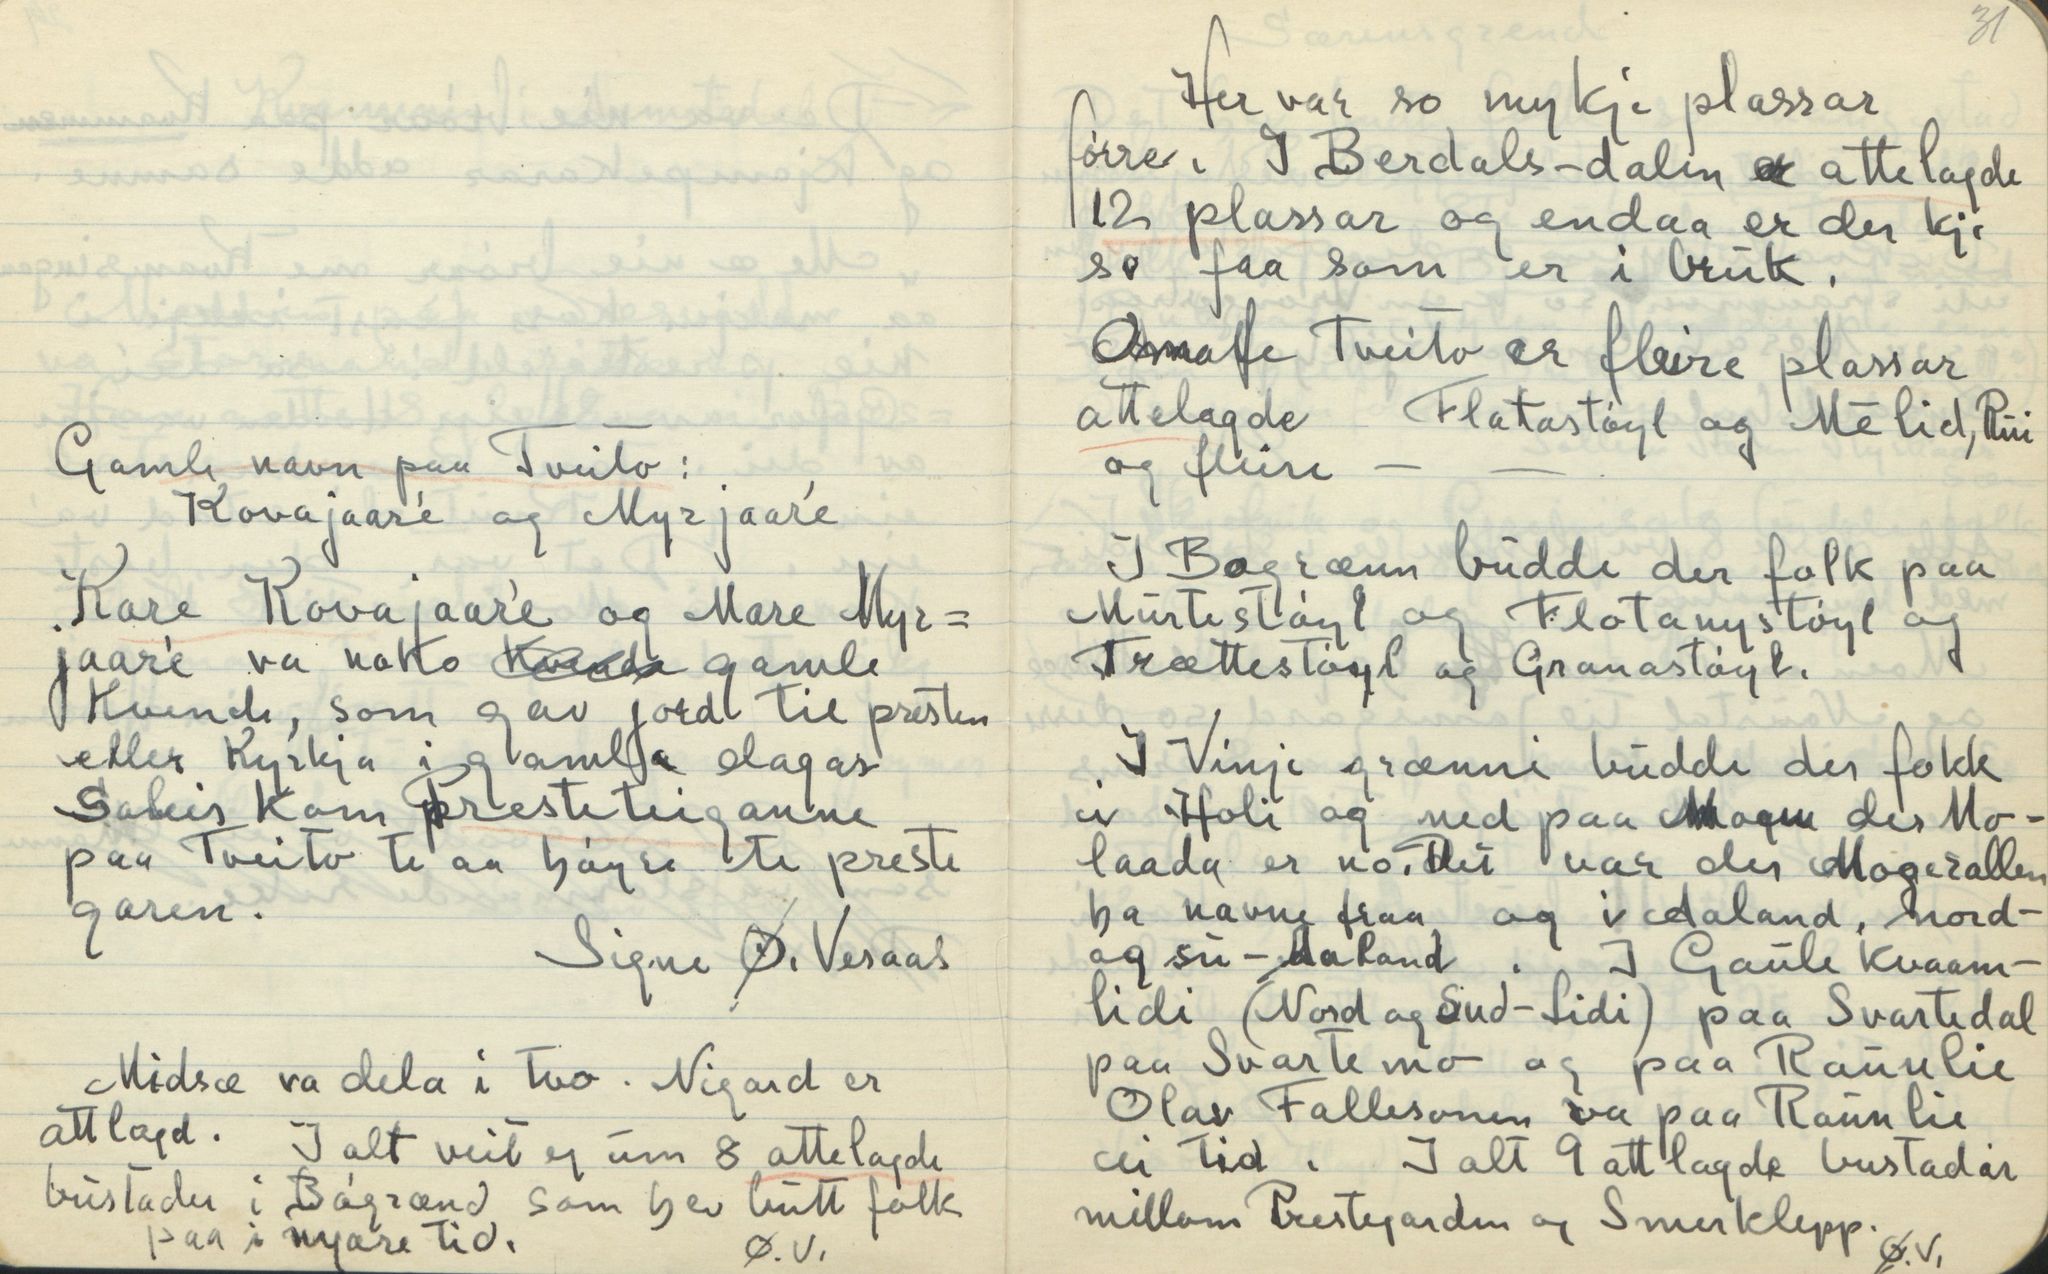 Gamle navn paa Tveito:
Kovajaaré og Myrjaaré
Kare Kovajaaré og Mare Myr=
jaaré va noko gamle
Kvende, som gav jord til presten
eller Kyrkja i gamle dagar
Soleis kom Presteteiganne
paa Tveito te aa høyre te preste
garen.
Signe Ø. Vesaas
Midsæ va dela i tvo. Nigard er
attlagd. I alt veit eg um 8 attelagde
bustader i Bøgrænd som hev butt folk
paa i nyare tid.
Ø.V.
31
Her var so mykje plassar
fórre. I Berdals-dalen er attelagde
12 plassar og endaa er der kje
so faa som er i bruk.
Tveito er fleire plassar
attelagde Flatastøyl og Mélid, Rui
og fleire — —
I Bøgrænn budde der folk paa
Murtestøyl og Flotanystøyl og
Trættestøyl og Granastøyl.
I Vinje grænni budde der fokk
i Holi og ned paa Mogen der Mo-
laada er no. Det var der Mogerallen
ha navne fraa og i Daland, nord-
og su-Daland. I Gaule Kvaam-
lidi (Nord og Sud-Lidi) paa Svartedal
paa Svartemo og paa Raunlie
Olav Fallesonen va paa Raunlie
ei tid. I alt 9 attlagde bustadar
millom Prestegarden og Smerklepp.
Ø.V.